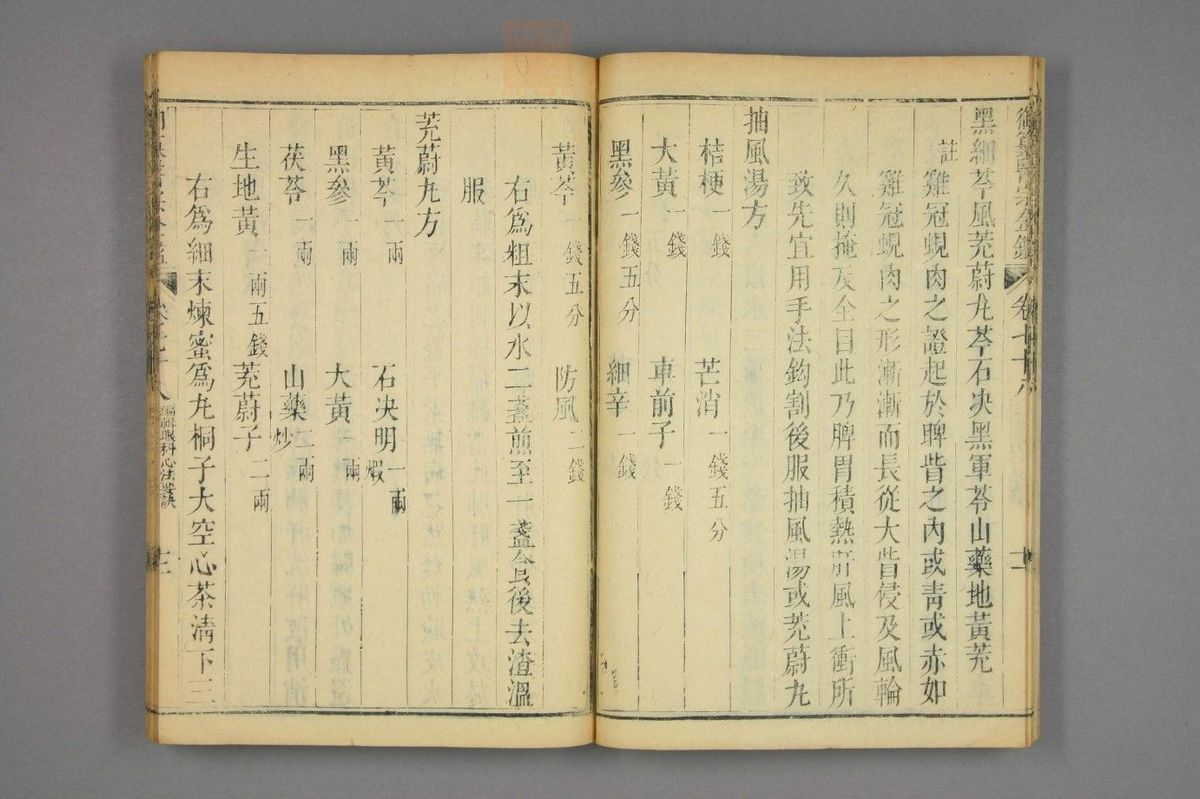 御纂醫宗金鑑 卷七十八
黑細芩風茺蔚丸芩石决黑軍苓山藥地黃茺
註雞冠蜆肉之證起於睥眥之內或靑或赤如
雞冠蜆肉之形漸漸而長從大眥侵及風輪
久則掩及全目此乃脾胃積熱肝風上衝所
致先宜用手法鈎割後服抽風湯或茺蔚丸
抽風湯方
桔梗一錢 芒消一錢五分
大黃一錢 車前子一錢
黑參一錢五分 細辛一錢
黃芩一錢五分 防風二錢
右爲粗末以水二盞煎至一盞食後去渣溫
服
茺蔚丸方
黃芩一兩 石决明一兩煆
黑參一兩 大黃一兩
茯苓一兩 山藥炒二兩
生地黃一兩五錢 茺蔚子二兩
右爲細末煉蜜爲丸桐子大空心茶清下三
卷七十八 編輯眼科心法要訣